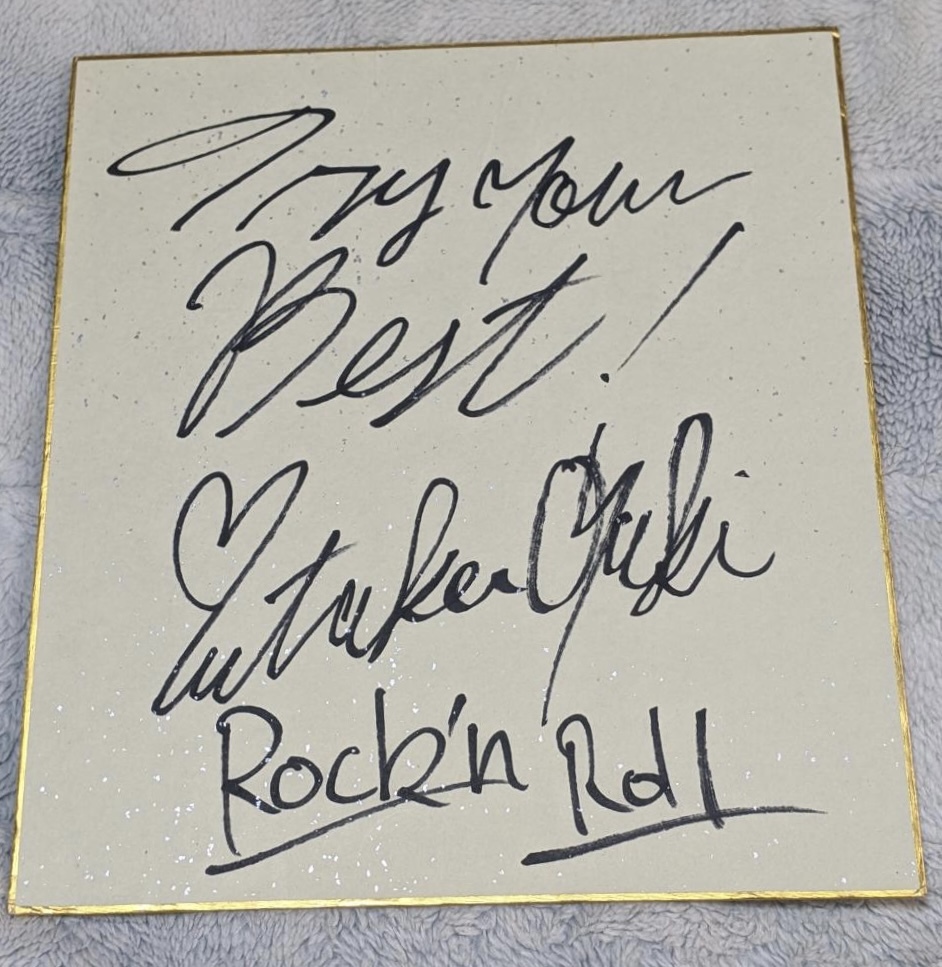 Try Your
Best!
Yutaka Yuki
Rock'n Roll